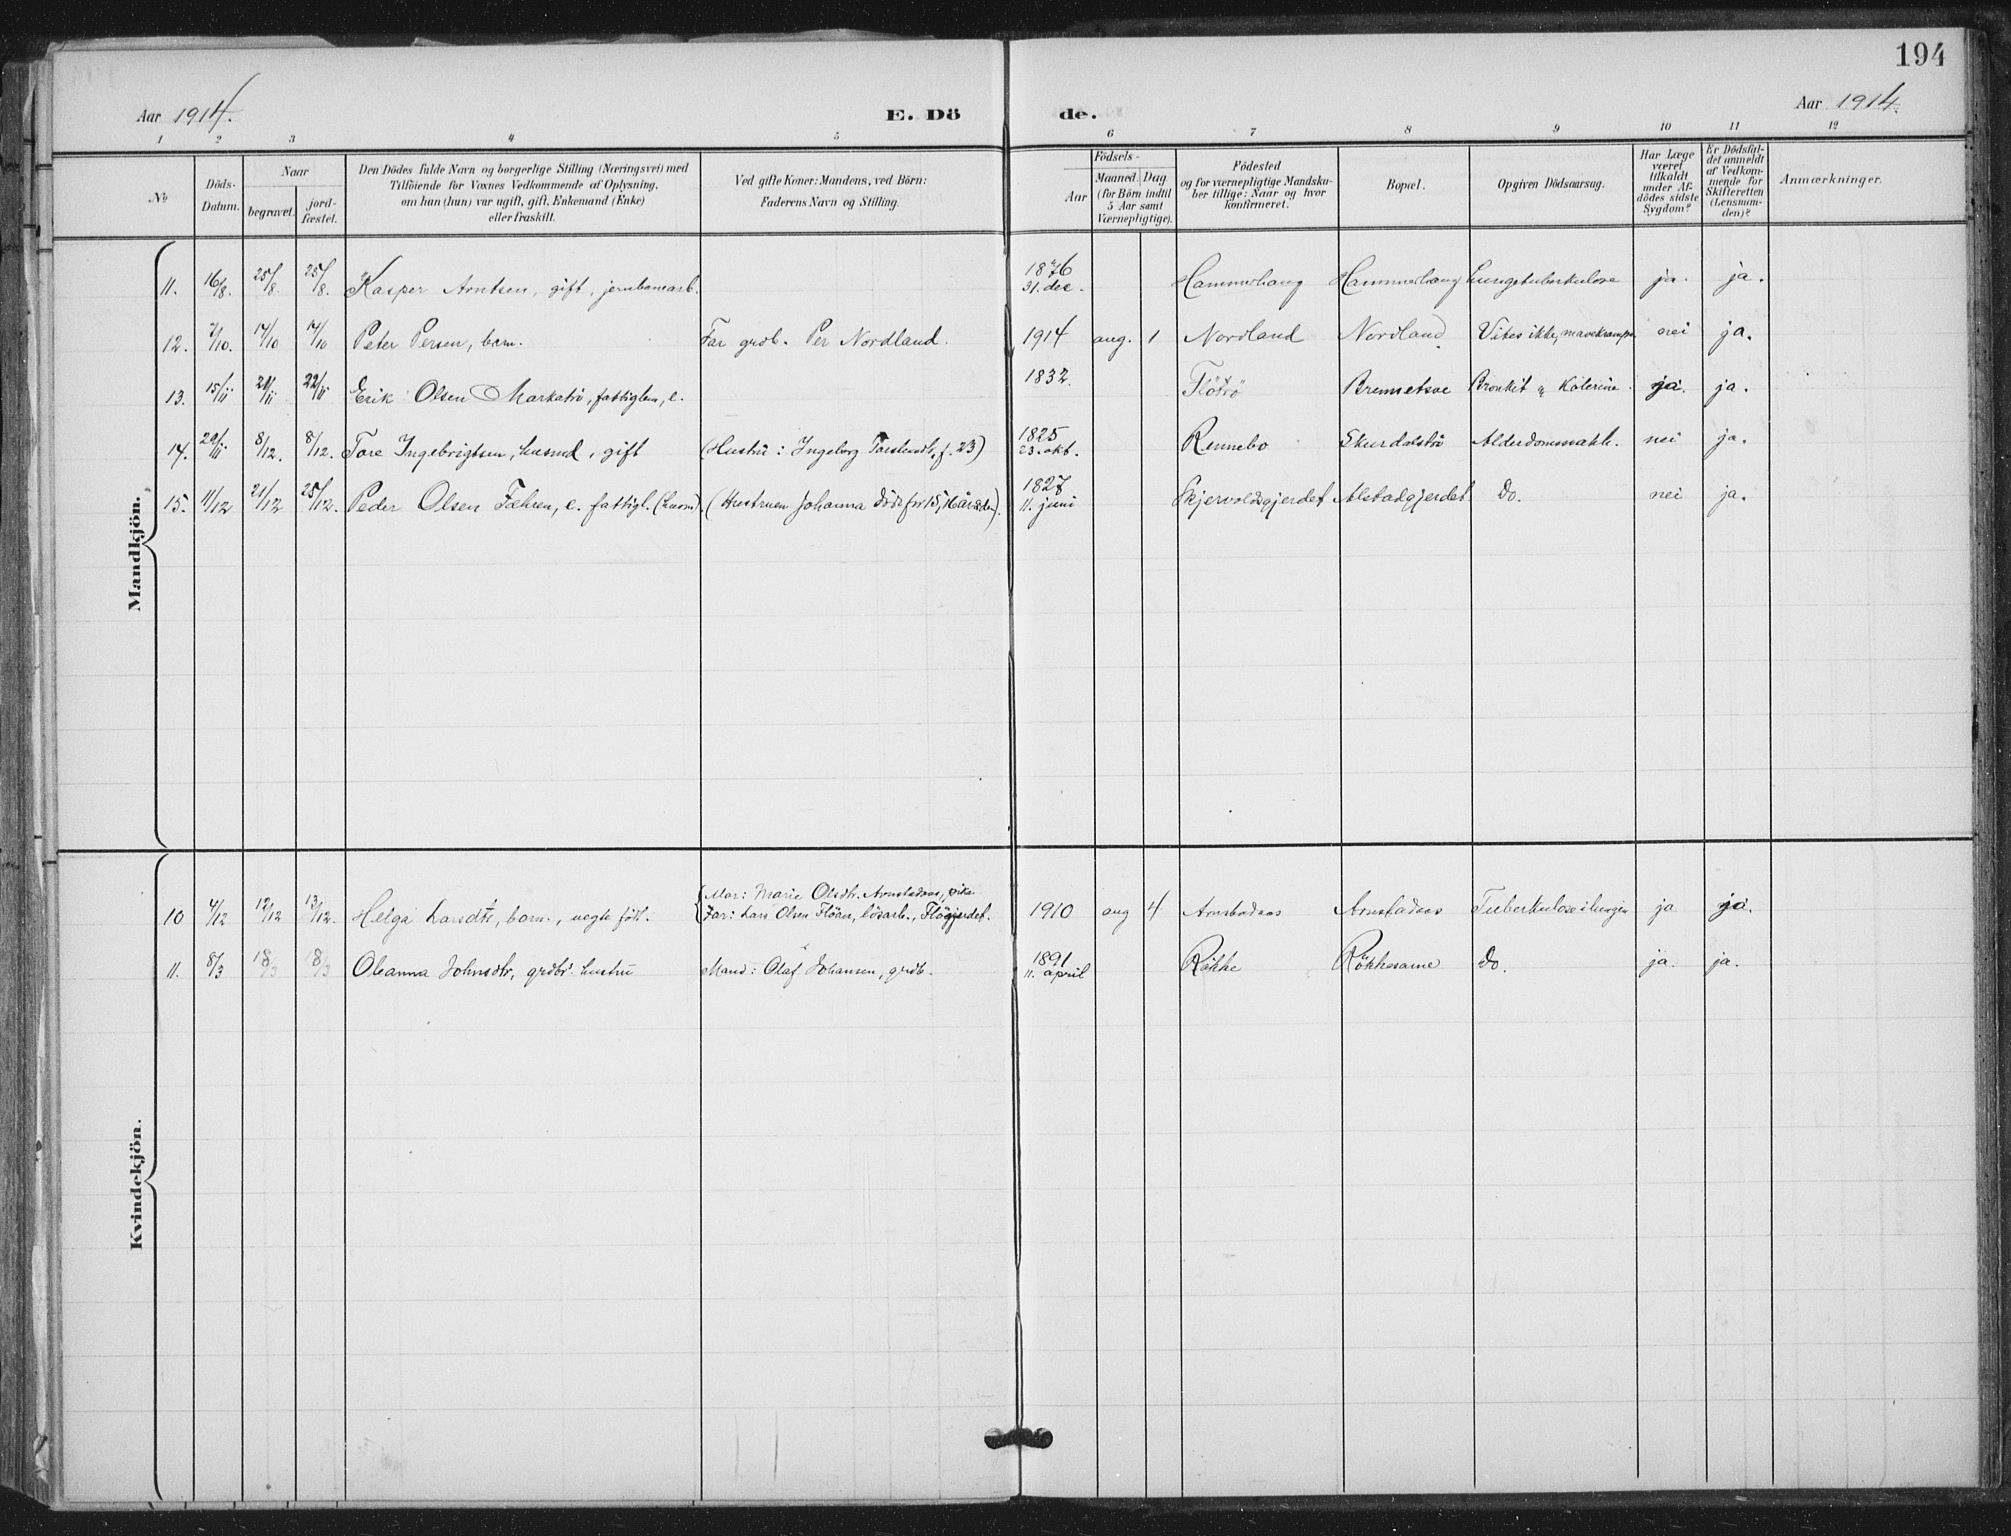 194
Aar 1914.
E. Dö
de.
Aar 1914.
1 2 3 4 5 6 7 8 9 10 11 12
No
Döds-
Datum.
Naar
begravet.
jord-
fæstet.
Den Dödes fulde Navn og borgerlige Stilling (Næringsvei) med
Tilföiende for Voxnes Vedkommende af Oplysning,
om han (hun) var ugift, gift, Enkemand (Enke)
eller fraskilt.
Ved gifte Koner: Mandens, ved Börn:
Faderens Navn og Stilling.
Födsels-
Aar
Maaned. Dag
(for Börn indtil
5 Aar samt
Værnepligtige).
Födested
og for værnepligtige Mandska-
ber tillige: Naar og hvor
konfirmeret.
Bopæl.
Opgiven Dödsaarsag.
Har Læge
været
tilkaldt
under Af-
dödes sidste
Sygdom?
Er Dödsfal-
det anmeldt
af Vedkom-
mende for
Skifteretten
(Lensman-
den)?
Anmærkninger.
Mandkjön.
11. 16/8. 25/8. 25/8. Kasper Arntsen, gift, jernbanearb. 1876 31. dec. Hammerhaug Hammerhaug Lungetuberkulose ja. ja.
12. 7/10. 17/10 17/10 Peter Persen, barn. Far grdb. Per Nordland. 1914 aug. 1 Nordland Nordland Vites ikke, mavekrampe nei ja.
13. 15/11 21/11 22/11 Erik Olsen Markatrö, fattiglem, e. 1832. Flötrö Bremsetsve Bronkit ja. ja.
14. 29/11 8/12. 8/12. Tore Ingebrigtsen, husmd, gift (Hustru: Ingeborg f. 23) 1825 23. okt. Rennebo Skurdalströ nei ja.
15. 11/12 21/12 25/12. Peder Olsen e. fattigl. (Hustruen Johanna döde for 15, 16 år siden). 1827 11. juni Skjervoldsgjerdet Alstadgjerdet Do. nei ja.
Kvindekjön.
10 4/12 12/12 13/12. Helga Larsdtr, barn, uegte født. Mor: Marie Olsdtr. Arnstadaas, pike
Far: Lars Olsen Flöan, lösarb., Flögjerdet. 1910 aug 4 Arnstadaas Arnstadaas Tuberkulose ja ja.
11. 8/3 18/3 18/3 Oleanna Johnsdtr, grdbr hustru Mand: Olaf Johansen, grdb. 1891 11. april Rökke Do. ja. ja.